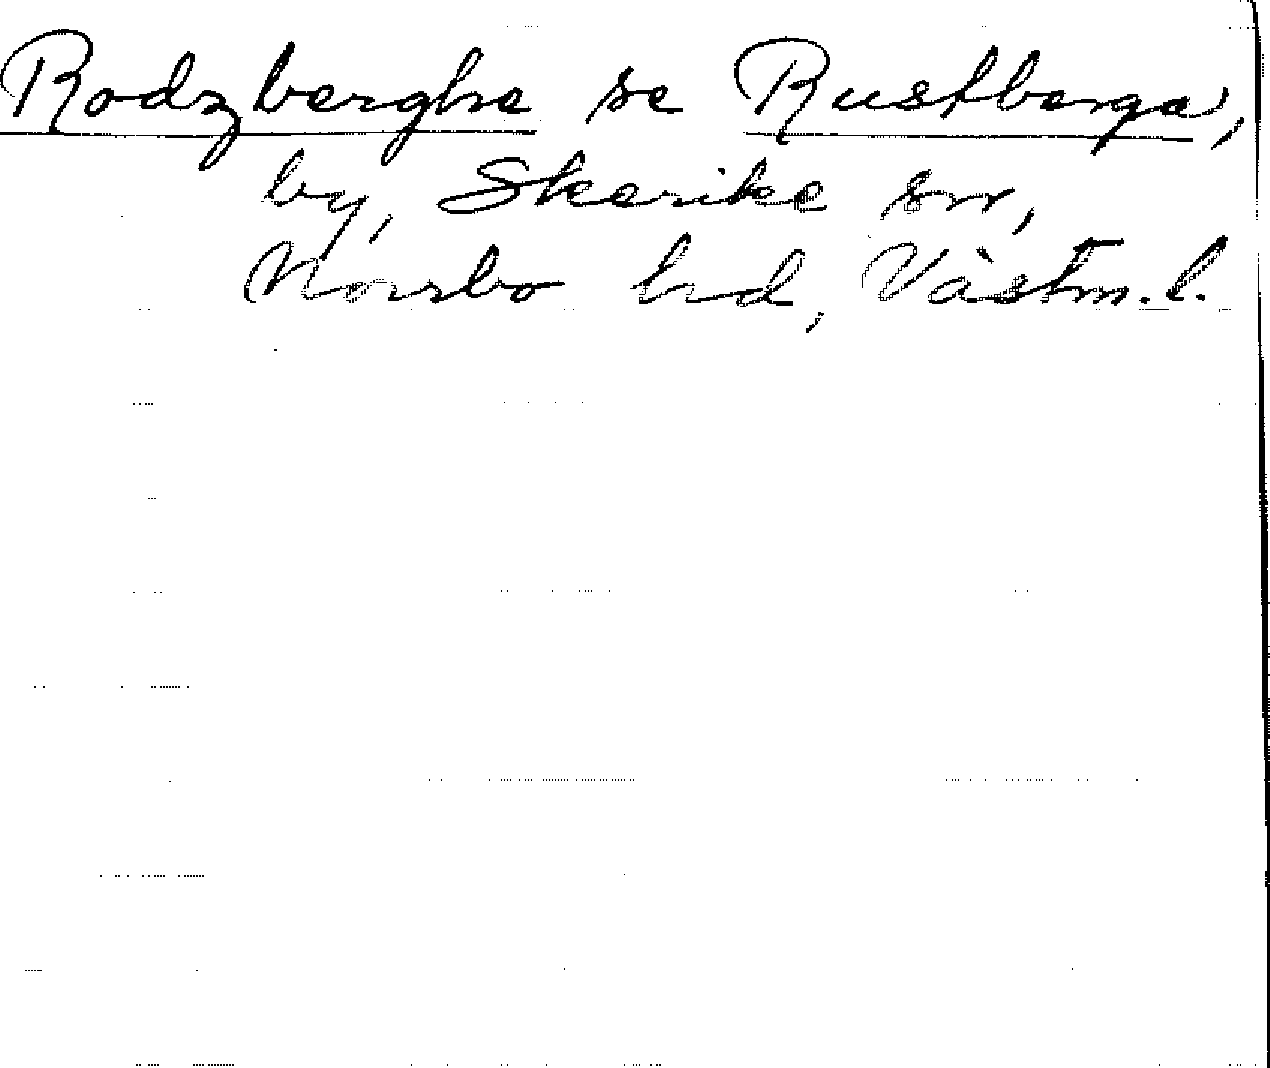 Rodzberghe se Rustberga,
by, Skerike sn,
Norrbo hd, Västm. l.